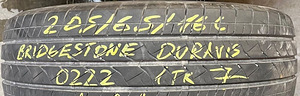 205/65/16C
BRIDGESTONE DURAVIS
0222 1TK 7